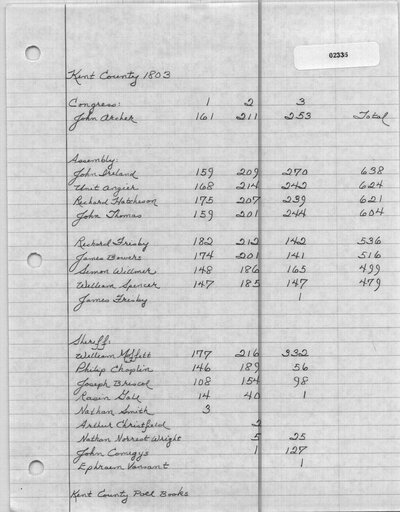 02335
Kent County 1803
Congress: 1 2 3
John Archer 161 211 253 Total
Assembly:
John Ireland 159 209 270 638
Unit Angier 168 214 242 624
Richard Hatcheson 175 207 239 621
John Thomas 159 201 244 604
Richard Frisby 182 212 142 536
James Bowers 174 201 141 516
Simon Wilmer 148 186 165 499
William Spencer 147 185 147 479
James Frisby 1
Sheriff:
William Moffett 177 216 332
Philip Choplin 146 189 56
Joseph Briscol 108 154 98
Rasin Gale 14 40 1
Nathan Smith 3
Arthur Christfield 2
Nathan Norrest Wright 5 25
John Comegys 1 127
Ephraim Vansant 1
Kent County Poll Books